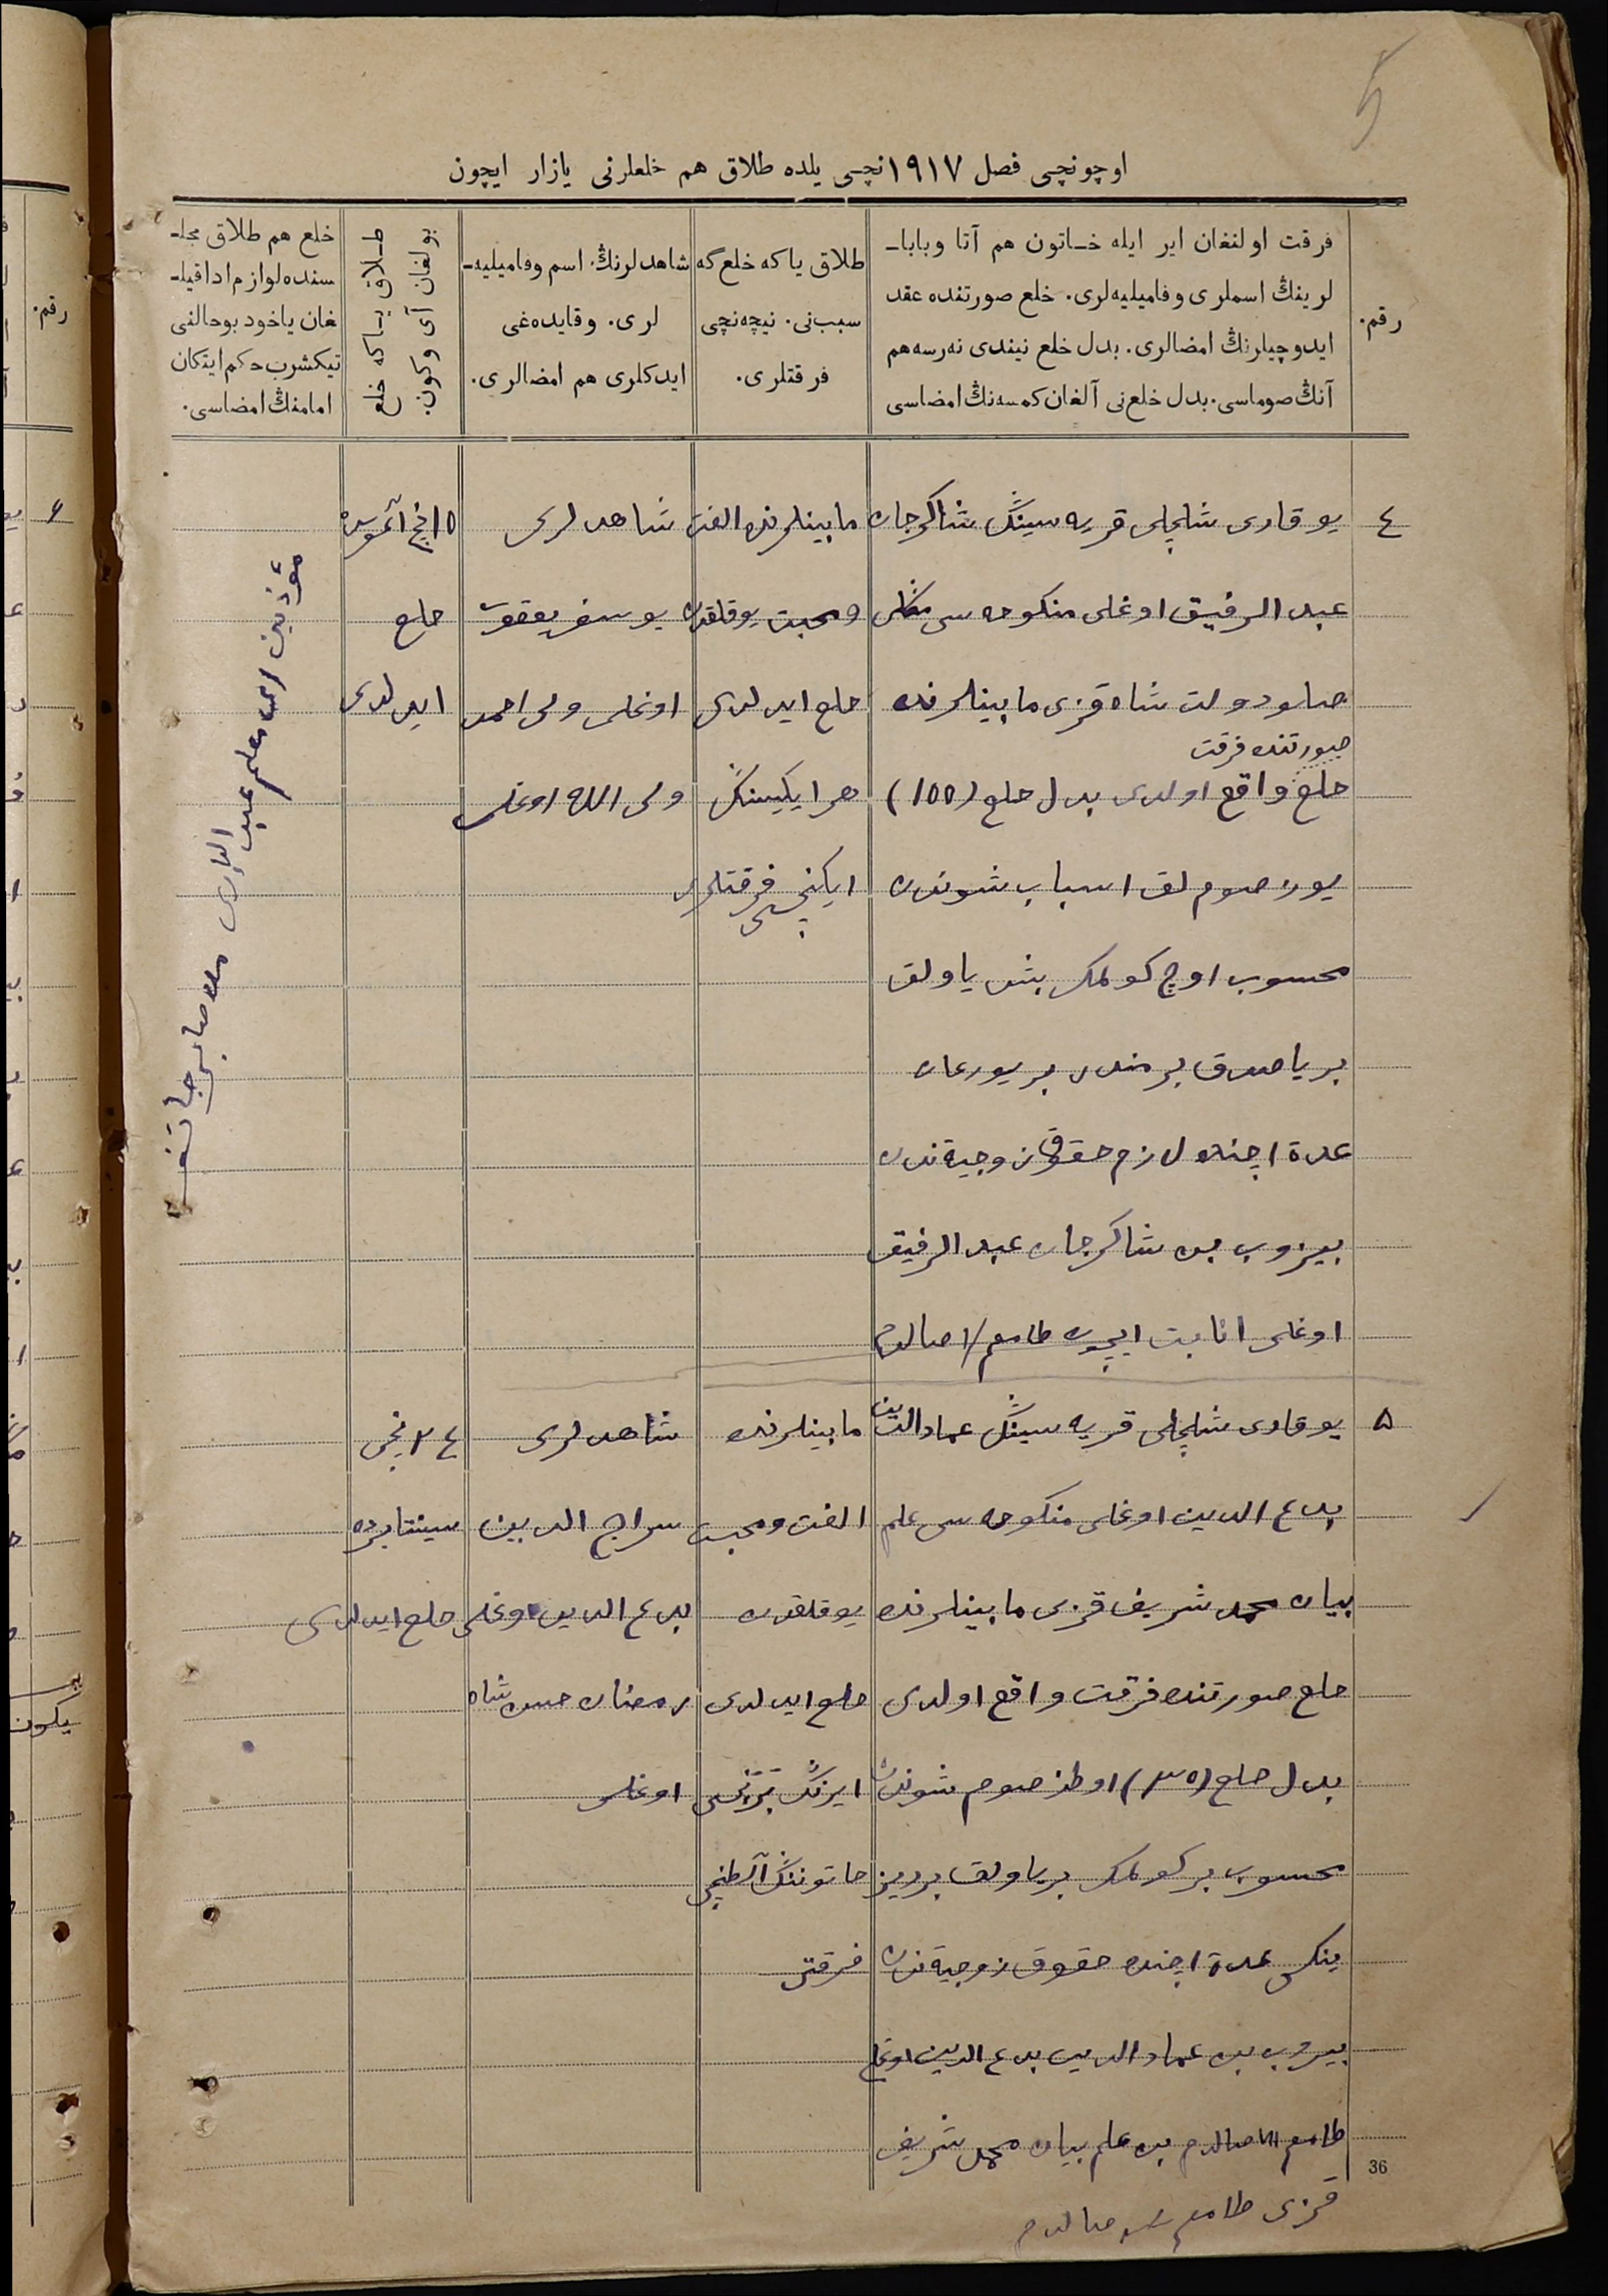 5
اوچونچی فصل ١٩١٧نچی یلده طلاق هم خلعلرنی یازار ایچون
رقم.
فرقت اولنغان ایر ایله خـاتون هم آتا وبابا-
لرینڭ اسملری وفامیلیه‌لری. خلع صورتنده عقد
ایدوچیلرنڭ امضالری. بدل خلع نیندی نه‌رسه هم
آنڭ صوماسی. بدل خلع‌نی آلغان کمسه‌نڭ امضاسی
طلاق یاکه خلع گه
سبب‌نی. نیچه‌نچی
فرقتلری.
شاهدلرنڭ اسم وفامیلیه-
لری. وقایده‌غی
ایدکلری هم امضالری.
طـلاق یـاکه خلع
بولغان آی وکون.
خلع هم طلاق مجلـ
سنده لوازم ادا قیلـ
غان یاخود بوحالنی
تیکشرب حکم ایتکان
امامنڭ امضاسی.
٤
یوقاری شلچلی قریه سینڭ شاکرجان
عبد الرفیق اوغلی منکوحه سی
دولت شاه قزی مابینلرنده
صورتنده فرقت
خلع واقع اولدی بدل خلع (١٥٥)
یوز صوم لق اسباب شوندن
محسوب اوچ کولمک بش یاولق
بر یاصدق بر مندر بر یورغان
عدة اچنده لازم حقوق زوجیةندن
بیزوب بن شاکرجان عبد الرفیق
اوغلی انابت ایچون طامغام صالدم
مابینلرنده الفت
ومحبت یوقلقدن
خلع ایدلدی
هر ایکیسینڭ
ایکنچی فرقتلری
شاهدلری
یوسف یعقوب
اوغلی ولی احمد
ولی الله اوغلی
١٥نچی آغوسطده
خلع
ایدلدی
مؤذن معلم عبد
٥
یوقاری شلچلی قریه سینڭ عمادالدین
بدع الدین اوغلی منکوحه سی علم
بیان محمد شریف قزی مابینلرنده
خلع صورتنده فرقت واقع اولدی
بدل خلع (٣٥) اوطز صوم شوندن
محسوب بر کولمک بر یاولق بر دیز
ینکی عدة اچنده حقوق زوجیةندن
بیزوب بن عماد الدین بدع الدین اوغلی
طامغام صالدم بن علم بیان محمد شریف
قزی طامغام صالدم
مابینلرنده
الفت ومحبت
یوقلقدن
خلع ایدلدی
ایرنڭ برنچی
خاتوننڭ آلطنچی
فرقتی
شاهدلری
سراج الدین
بدع الدین اوغلی
رمضان حسن شاه
اوغلی
٢٤نچی
سینتابرده
خلع ایدلدی
36